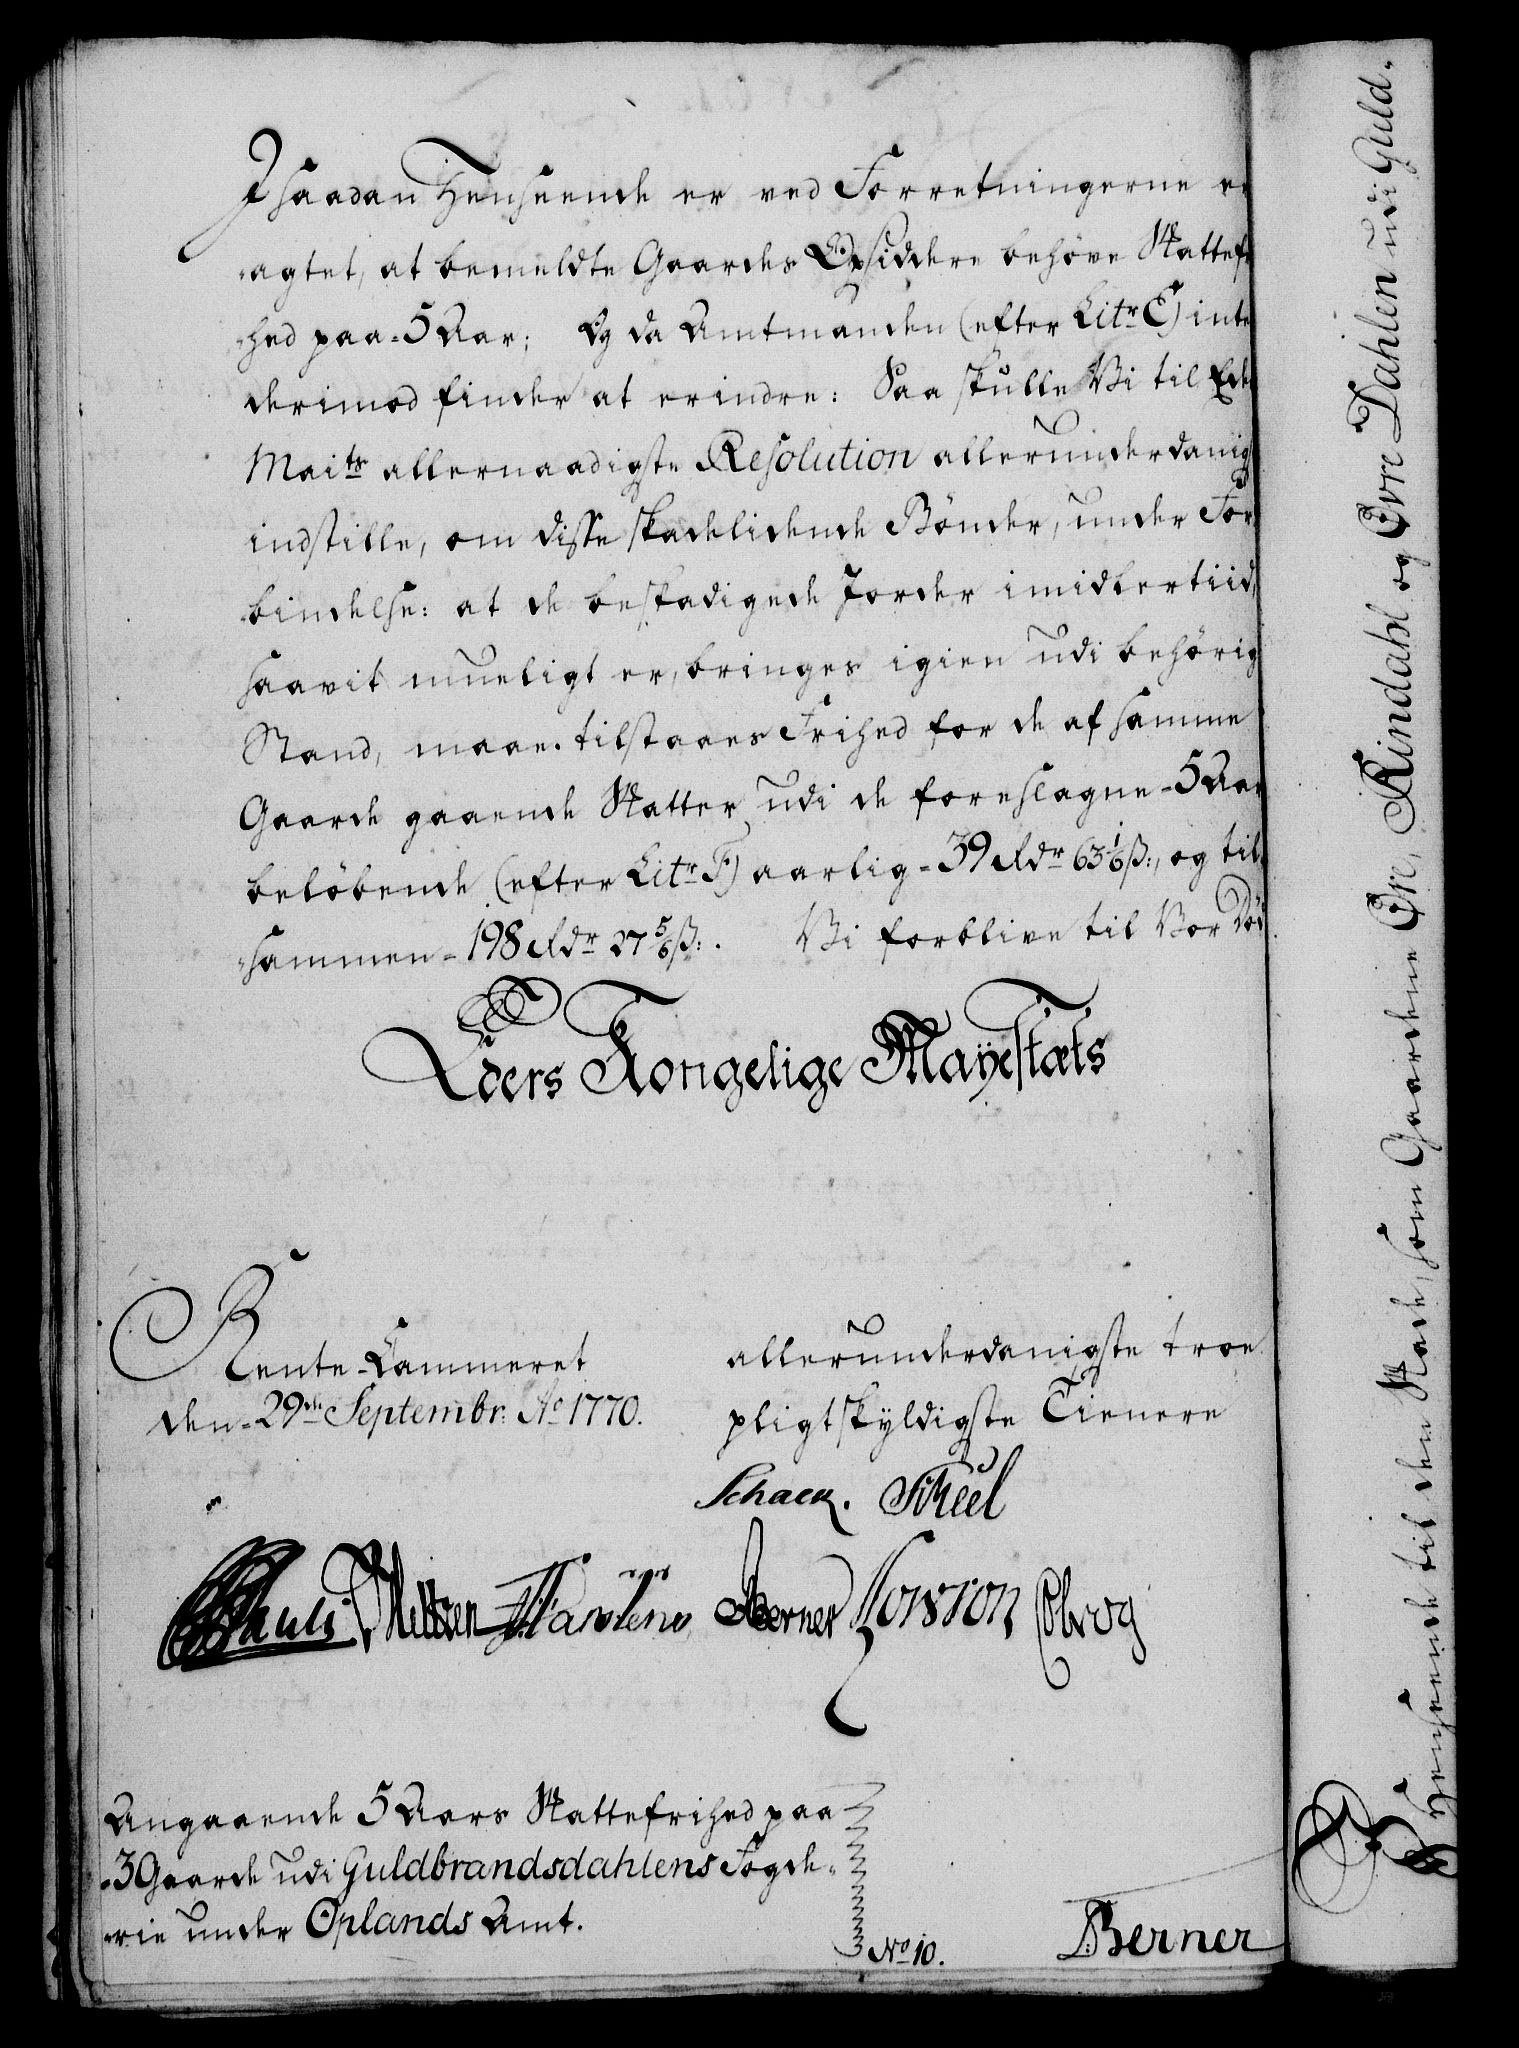 I saadan Henseende er ved Forretningerne er
-agtet, at bemeldte Gaardes Opsiddere behøve Skattefri
-hed paa 5 Aar; Og da Amtmanden (efter Litr. E) intet
derimod finder at erindre: Saa skulle Vi til Eders
Maits allernaadigste Resolution allerunderdanigst
indstille, om disse skadelidende Bønder, under For-
-bindelse: at de beskadigede Jorder imidlertiid,
saavit mueligt er, bringes igien udi behørig
Stand, maae tilstaaes Frihed for de af samme
Gaarde gaaende Skatter udi de foreslagne 5 Aar
beløbende (efter Litr. F) aarlig 39 Rdr 63 1/6 ß:, og til-
-sammen 198 Rdr 27 5/6 ß:. Vi forblive til Vor Død
Eders Kongelige Mayestæts
Rente-Cammeret
den 29de Septembr. Ao 1770.
allerunderdanigste troe
pligtskyldigste Tienere
Schack. Skeel
Pauli Berner Cowson Obrog
Angaaende 5 Aars Skattefrihed paa
3 Gaarde udi Guldbrandsdahlens Fogde-
-rie under Oplands Amt.
No 10.
Berner
I Henseende til den Skade, som Gaardene Øre, Rindahl og Øvre Dahlen udi Guld-